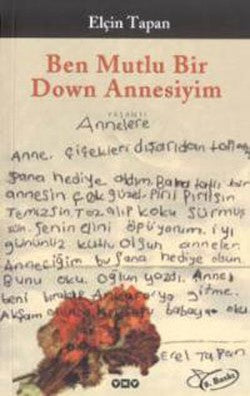 Elçin Tapan
Ben Mutlu Bir
Down Annesiyim
YAŞANTI
Annelere
Anne, çiçekleri dışarıdan
Sana hediye aldım. Baba tatlı bir
annesin çok güzel. Piril Pirilsin
Temizsin. Toz alıp koku Sürmüş
sün. Senin elini öpüyorum. iyi
gününüz kutlu olsun anneler
Anneciğim bu Sana hediye olsun
Bunu oku. oğlun yazdı. Anne
beni Ankara'ya gitme.
Akşam babaya oku
Erel Tapan
YKY
9. Baskı